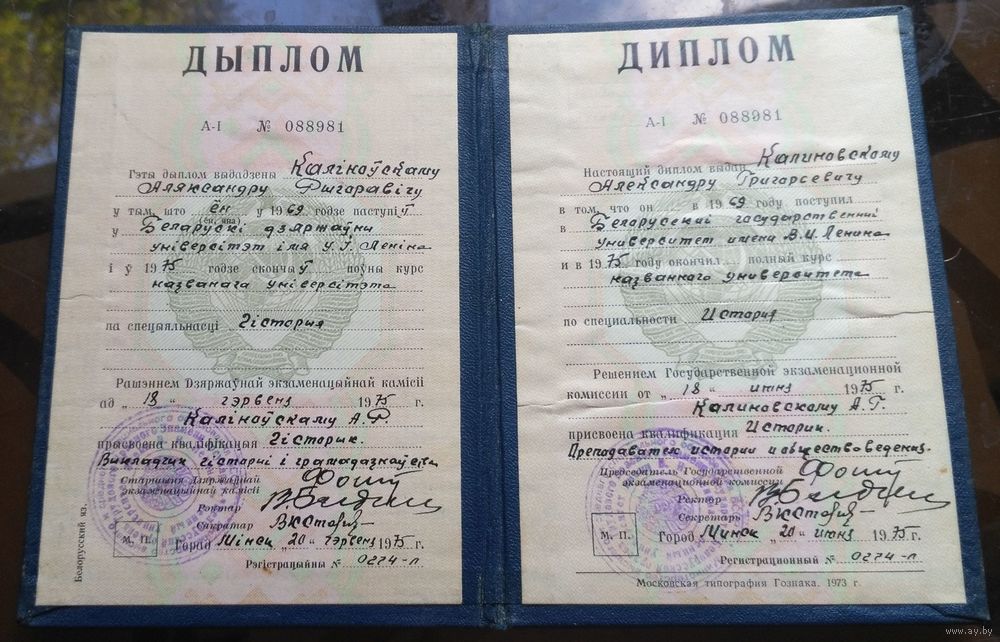 ДЫПЛОМ
А-I № 088981
Гэты дыплом выдадзены Калiноўскаму
Аляксандру Рыгаравiчу
у тым, што ён у 1969 годзе паступiў
(ён, яна)
у Беларускi дзяржаўны
унiверсiтэт iмя У.I. Ленiна
i ў 1975 годзе скончыў поўны курс
названага унiверсiтэта
па спецыяльнасцi Гiсторыя
Рашэннем Дзяржаўнай экзаменацыйнай камiсii
ад „18“ чэрвеня 1975 г.
Калiноўскаму А.Р.
прысвоена квалiфiкацыя Гiсторык.
Выкладчык гiсторыi i грамадазнаўства
Старшыня Дзяржаўнай
экзаменацыйнай камiсii
Рэктар
Сакратар
М. П. Горад Мiнск „20“ чэрвень 1975 г.
Рэгiстрацыйны № 0274-л
Белорусский яз.
ДИПЛОМ
А-I № 088981
Настоящий диплом выдан Калиновскому
Александру Григорьевичу
в том, что он в 1969 году поступил
в Белорусский государственный
университет имени В.И. Ленина
и в 1975 году окончил полный курс
названного университета
по специальности История
Решением Государственной экзаменационной
комиссии от „18“ июня 1975 г.
Калиновскому А.Г.
присвоена квалификация Историк.
Преподаватель истории и обществоведения.
Председатель Государственной
экзаменационной комиссии
Ректор
Секретарь
М. П. Город Минск „20“ июня 1975 г.
Регистрационный № 0274-л
Московская типография Гознака. 1973 г.
www.ay.by